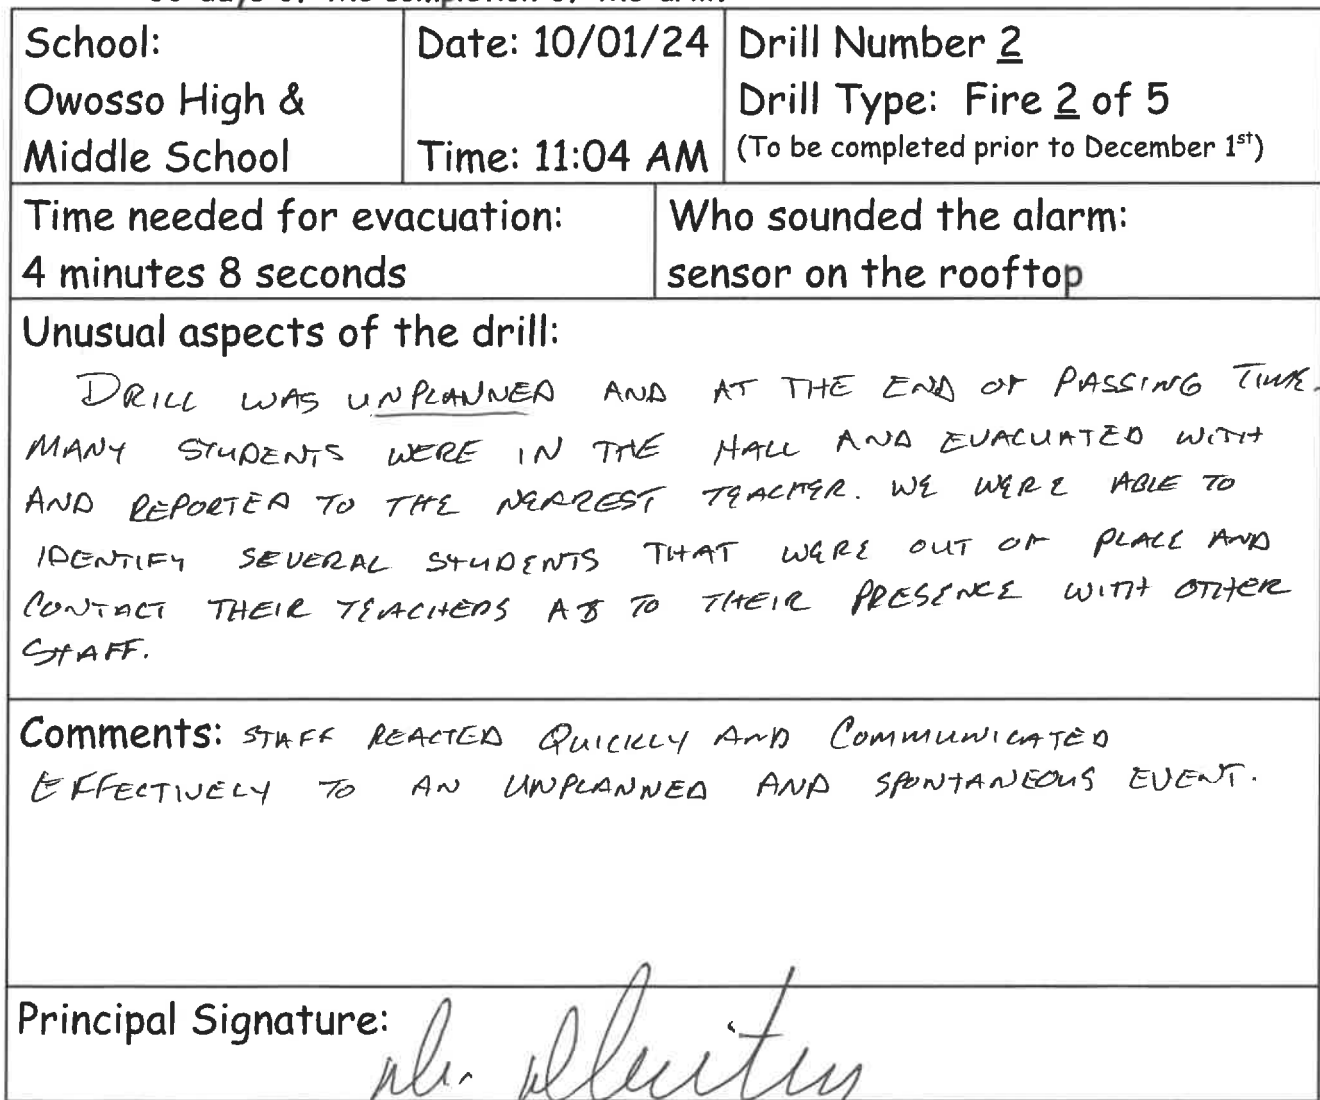 30 days of the completion of the drill.
School:
Owosso High &
Middle School
Date: 10/01/24
Time: 11:04 AM
Drill Number 2
Drill Type: Fire 2 of 5
(To be completed prior to December 1st)
Time needed for evacuation:
4 minutes 8 seconds
Who sounded the alarm:
sensor on the rooftop
Unusual aspects of the drill:
DRILL WAS UNPLANNED AND AT THE END OF PASSING TIME.
MANY STUDENTS WERE IN THE HALL AND EVACUATED WITH
AND REPORTED TO THE NEAREST TEACHER. WE WERE ABLE TO
IDENTIFY SEVERAL STUDENTS THAT WERE OUT OF PLACE AND
CONTACT THEIR TEACHERS AS TO THEIR PRESENCE WITH OTHER
STAFF.
Comments: STAFF REACTED QUICKLY AND COMMUNICATED
EFFECTIVELY TO AN UNPLANNED AND SPONTANEOUS EVENT.
Principal Signature: